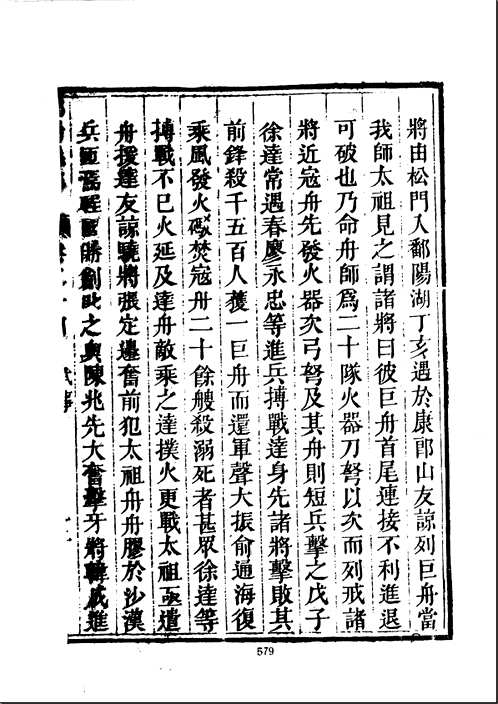 將由松門入鄱陽湖丁亥遇於康郎山友諒列巨舟當
我師太祖見之謂諸將曰彼巨舟首尾連接不利進退
可破也乃命舟師爲二十隊火器刀弩以次而列戒諸
將近寇舟先發火器次弓弩及其舟則短兵擊之戊子
徐達常遇春廖永忠等進兵搏戰達身先諸將擊敗其
前鋒殺千五百人獲一巨舟而還軍聲大振俞通海復
乘風發火礮焚寇舟二十餘艘殺溺死者甚眾徐達等
搏戰不已火延及達舟敵乘之達撲火更戰太祖亟遣
舟援達友諒驍將張定邊奮前犯太祖舟舟膠於沙漢
兵
之與陳兆先大奮擊牙將韓成進
579